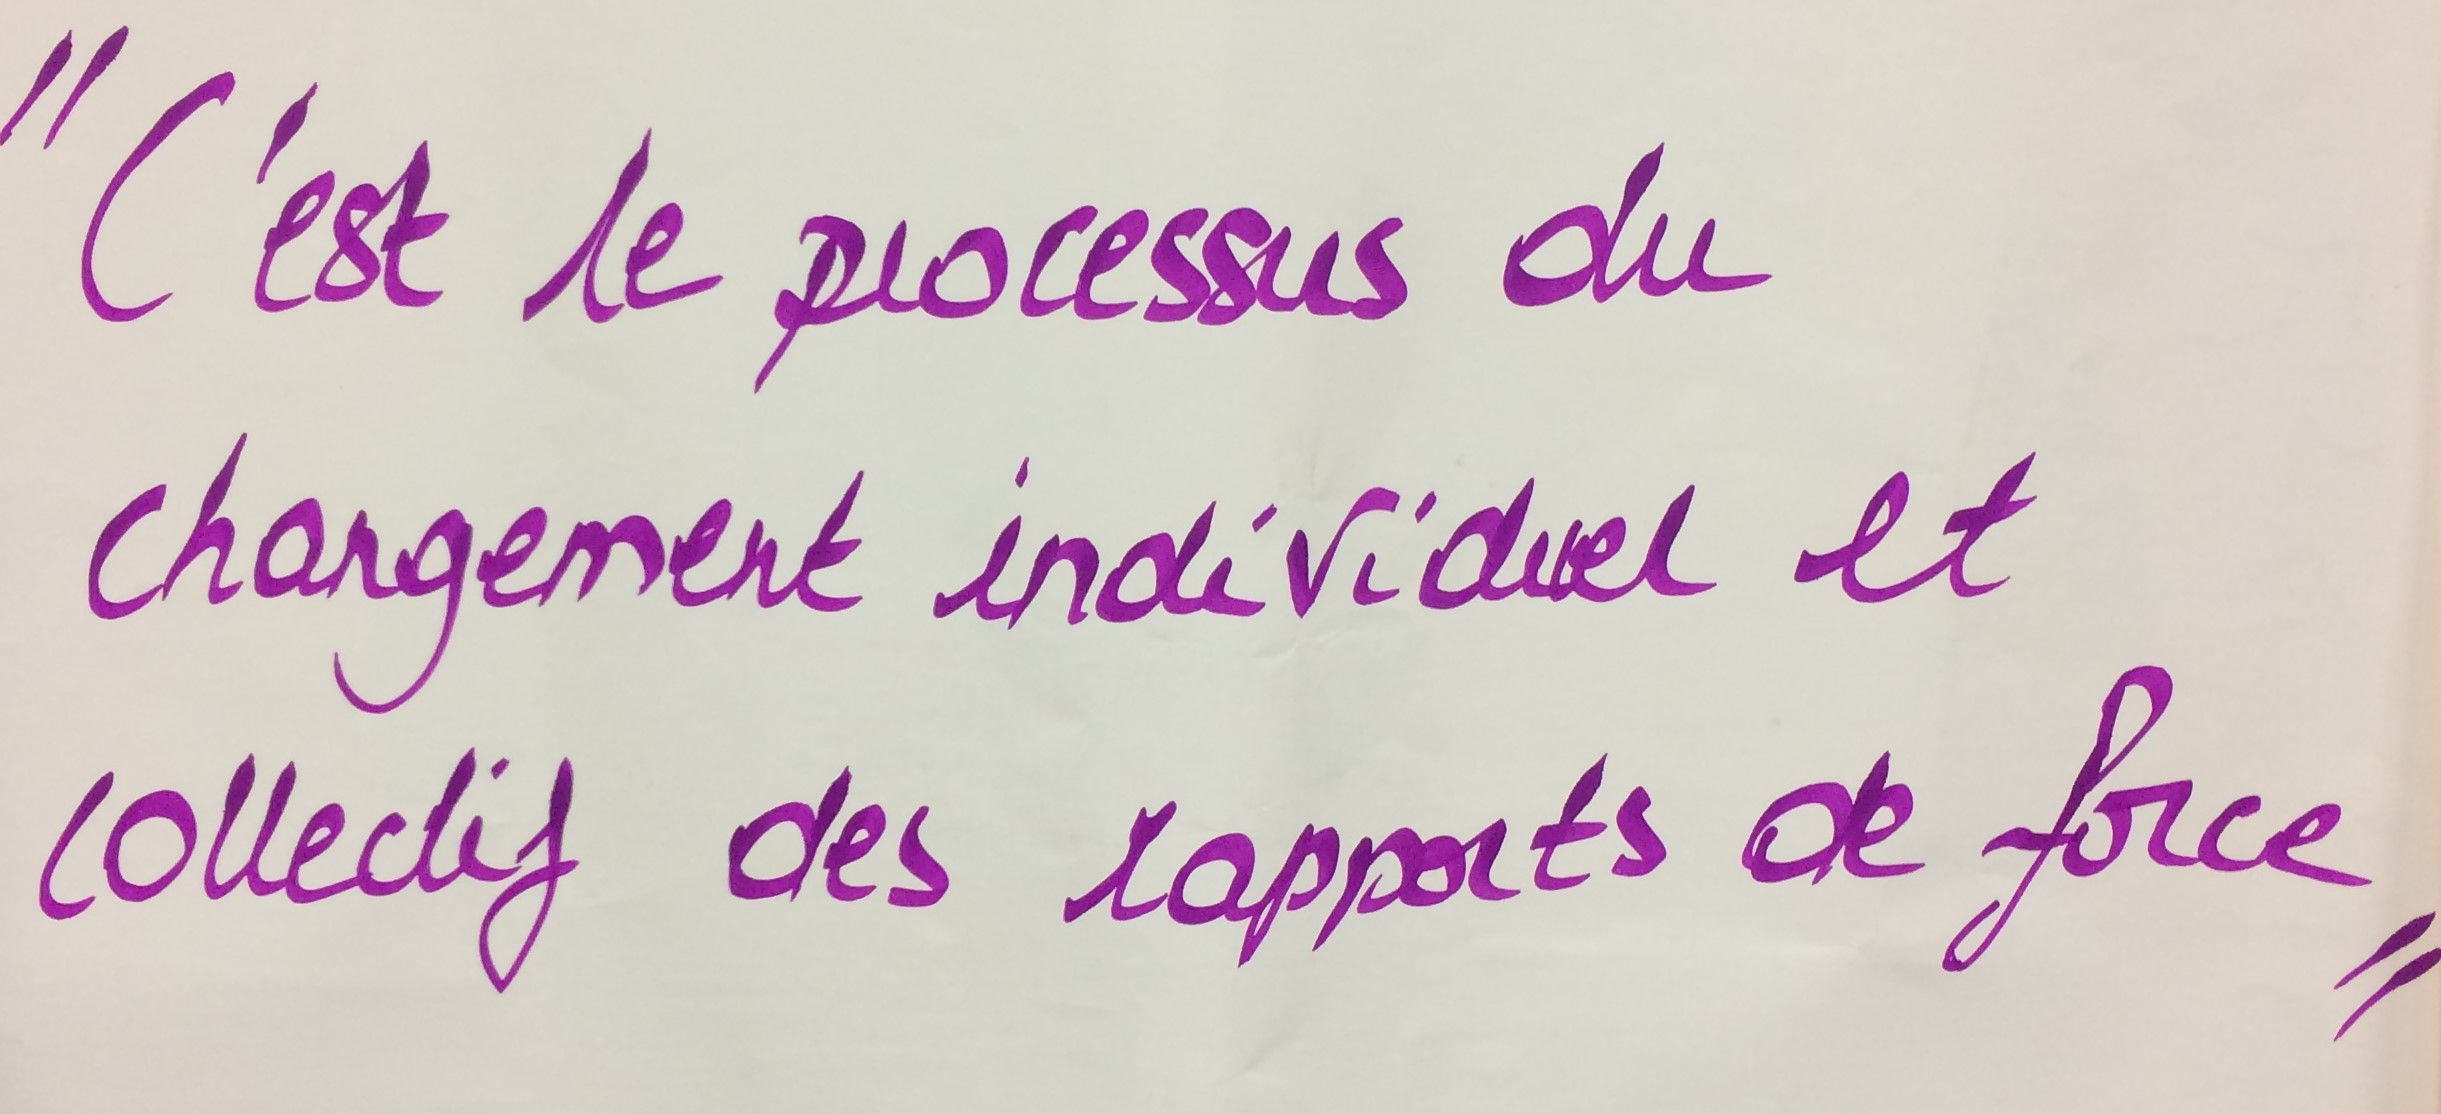 "C'est le processus du
changement individuel et
collectif des rapports de force"